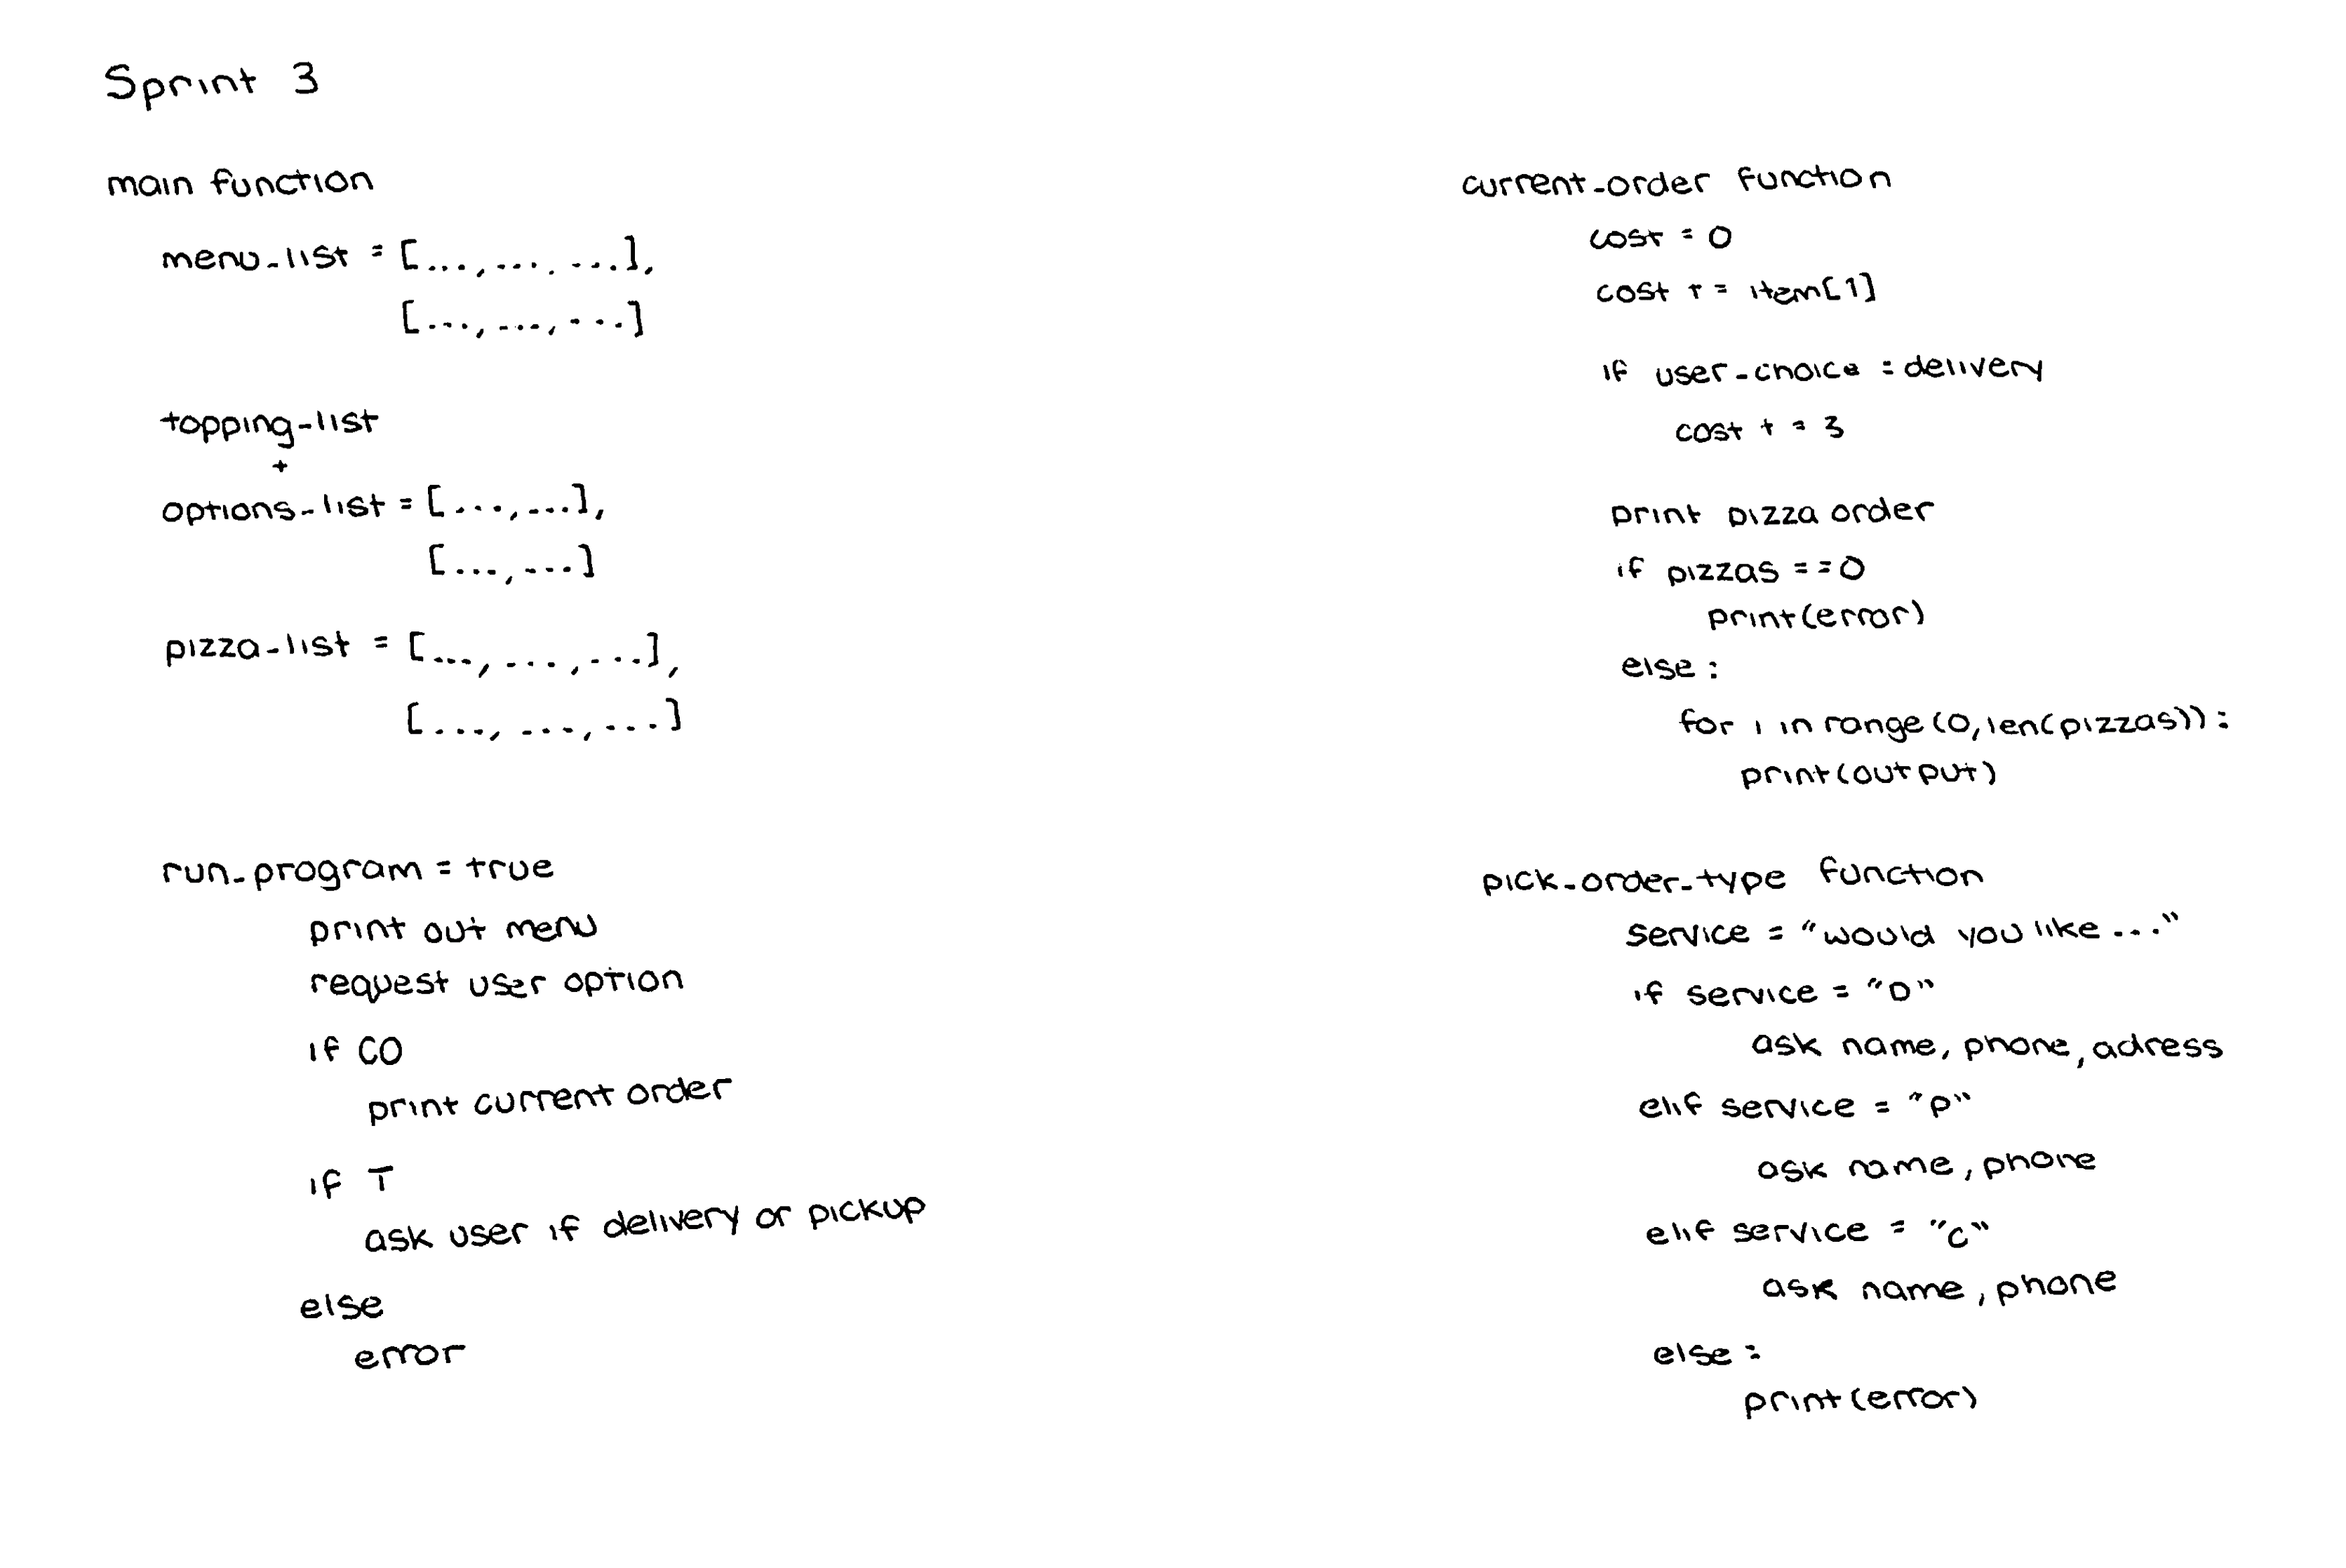 Sprint 3
main function
menu_list = [..., ..., ...],
[..., ..., ...]
topping_list
+
options_list = [..., ...],
[..., ...]
pizza_list = [..., ..., ...],
[..., ..., ...]
run_program = true
print out menu
request user option
if CO
print current order
if T
ask user if delivery or pickup
else
error
current_order function
cost = 0
cost += item[1]
if user_choice = delivery
cost += 3
print pizza order
if pizzas == 0
print(error)
else:
for i in range(0, len(pizzas)):
print(output)
pick_order_type function
service = "would you like ..."
if service = "D"
ask name, phone, adress
elif service = "P"
ask name, phone
elif service = "C"
ask name, phone
else:
print(error)